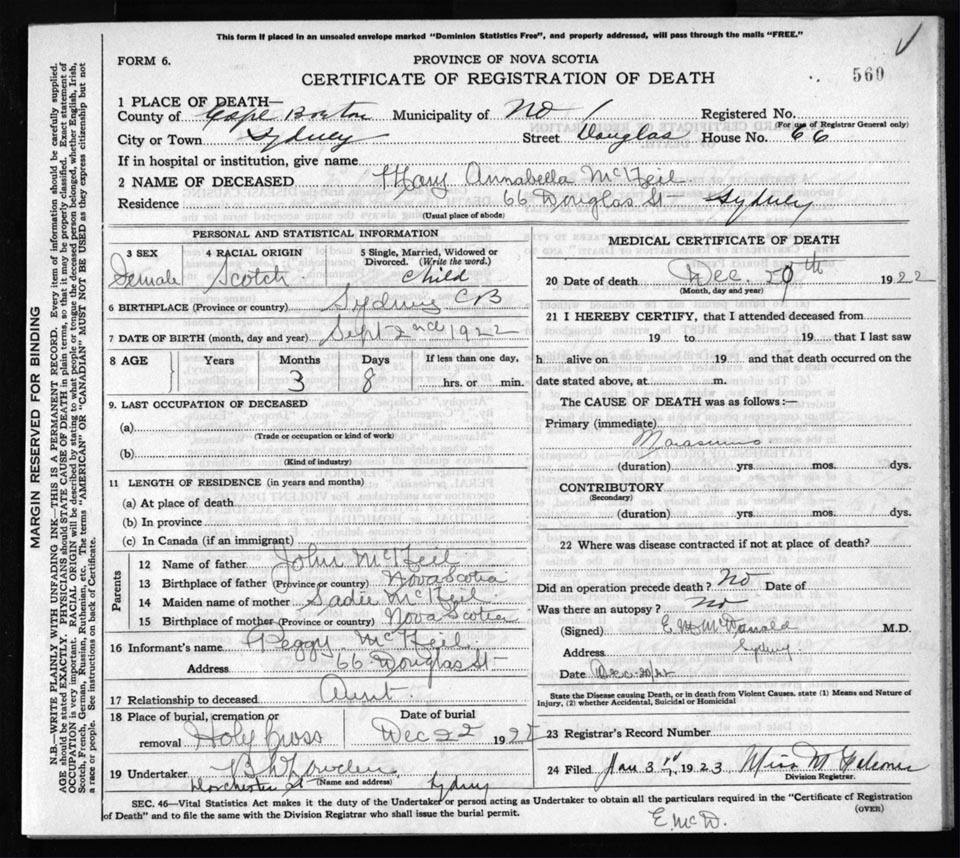 This form if placed in an unsealed envelope marked "Dominion Statistics Free", and properly addressed, will pass through the mails "FREE."
FORM 6. PROVINCE OF NOVA SCOTIA
CERTIFICATE OF REGISTRATION OF DEATH 560
1 PLACE OF DEATH—
County of Cape Breton Municipality of No 1 Registered No.
(For use of Registrar General only)
City or Town Sydney Street Douglas House No. 66
If in hospital or institution, give name
2 NAME OF DECEASED Mary Annabella McNeil
Residence 66 Douglas St - Sydney
(Usual place of abode)
PERSONAL AND STATISTICAL INFORMATION
3 SEX 4 RACIAL ORIGIN 5 Single, Married, Widowed or Divorced. (Write the word.)
Female Scotch Child
6 BIRTHPLACE (Province or country) Sydney CB
7 DATE OF BIRTH (month, day and year) Sept 2nd 1922
8 AGE Years Months Days If less than one day,
3 8 hrs. or min.
9. LAST OCCUPATION OF DECEASED
(a)
(Trade or occupation or kind of work)
(b)
(Kind of industry)
11 LENGTH OF RESIDENCE (in years and months)
(a) At place of death
(b) In province
(c) In Canada (if an immigrant)
Parents
12 Name of father John McNeil
13 Birthplace of father (Province or country) Nova Scotia
14 Maiden name of mother Sadie McNeil
15 Birthplace of mother (Province or country) Nova Scotia
16 Informant's name Peggy McNeil
Address 66 Douglas St
17 Relationship to deceased Aunt.
18 Place of burial, cremation or removal Holy Cross Date of burial Dec 22 1922
19 Undertaker
(Name and address)
Dorchester St Sydney
MEDICAL CERTIFICATE OF DEATH
20 Date of death Dec. 20th 1922
(Month, day and year)
21 I HEREBY CERTIFY, that I attended deceased from
19 to 19 that I last saw
h alive on 19 and that death occurred on the
date stated above, at m.
The CAUSE OF DEATH was as follows:—
Primary (immediate)
Marasmus
(duration) yrs. mos. dys.
CONTRIBUTORY
(Secondary)
(duration) yrs. mos. dys.
22 Where was disease contracted if not at place of death?
Did an operation precede death? No Date of
Was there an autopsy? No
(Signed) E M McDonald M.D.
Address Sydney.
Date Dec 20/22
State the Disease causing Death, or in death from Violent Causes, state (1) Means and Nature of
Injury, (2) whether Accidental, Suicidal or Homicidal
23 Registrar's Record Number
24 Filed Jan 3 1923 Miss M
Division Registrar.
SEC. 46—Vital Statistics Act makes it the duty of the Undertaker or person acting as Undertaker to obtain all the particulars required in the "Certificate of Registration
of Death" and to file the same with the Division Registrar who shall issue the burial permit. (OVER)
E. McD.
MARGIN RESERVED FOR BINDING
N.B.—WRITE PLAINLY WITH UNFADING INK—THIS IS A PERMANENT RECORD. Every item of information should be carefully supplied.
AGE should be stated EXACTLY. PHYSICIANS should STATE CAUSE OF DEATH in plain terms, so that it may be properly classified. Exact statement of
OCCUPATION is very important. RACIAL ORIGIN will be described by stating to what people or tongue the deceased person belonged, whether English, Irish,
Scotch, French, German, Russian, Ruthenian, etc. The terms "AMERICAN" OR "CANADIAN" MUST NOT BE USED as they express citizenship but not
a race or people. See instructions on back of Certificate.